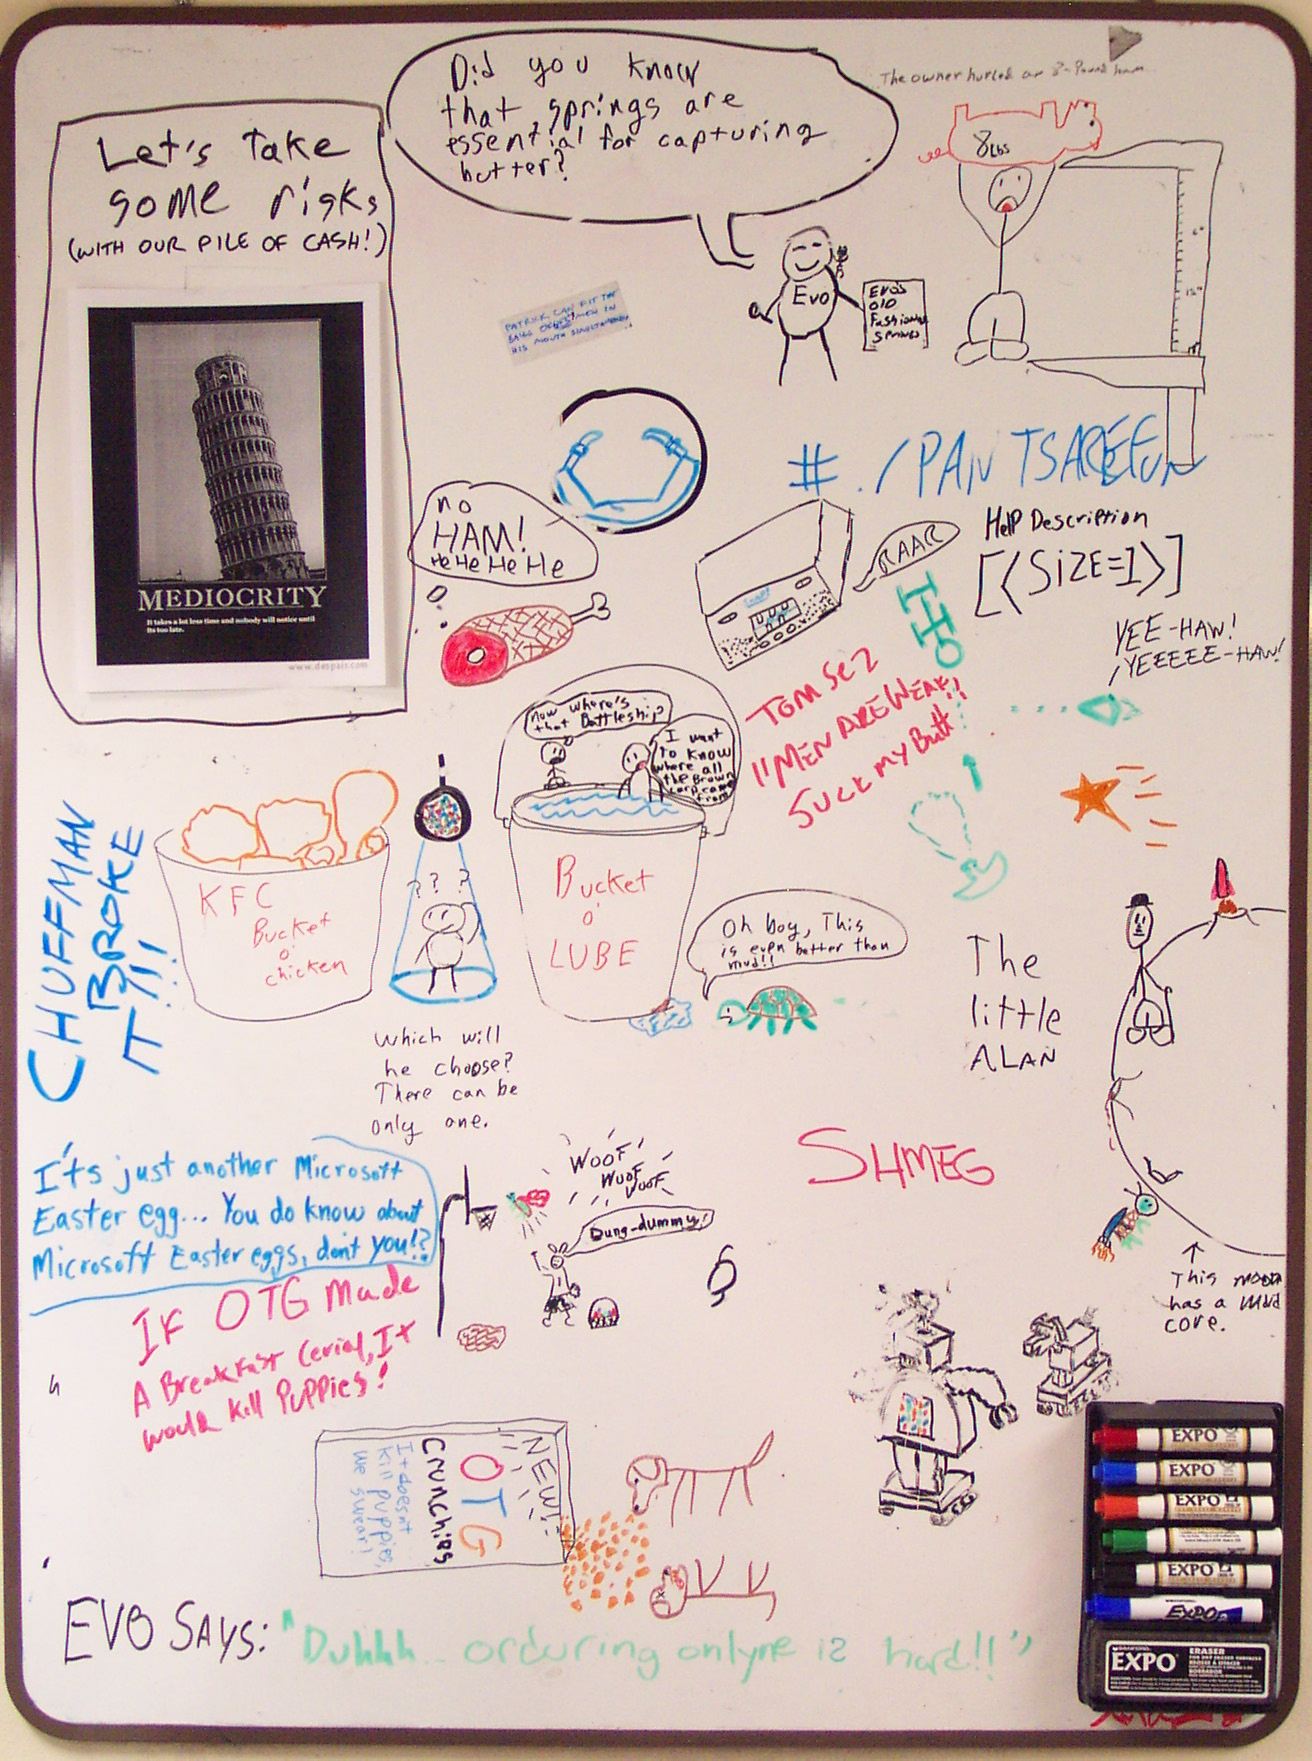 Did you know
that springs are
essential for capturing
butter?
The owner hurled an 8-Pound ham
8 Lbs
Let's Take
some risks
(WITH OUR PILE OF CASH!)
MEDIOCRITY
It takes a lot less time and nobody will notice until
its too late.
www.despair.com
EVO
EVO'S
OLD
Fashioned
SPRINGS
PATRICK CAN FIT THE
BALLS OF
MEN IN
HIS MOUTH SIMULTANEOUSLY
# ./PANTSAREFUN
no
HAM!
HeHeHeHe
RAAR
Help Description
[<SiZE=1>]
YEE-HAW!
YEEEEE-HAW!
TOM SEZ
"MEN ARE WEAK!!
SUCK MY Butt
Now where's
that Battleship?
I want
to know
where all
the Brown
carp came
from
KFC
Bucket
o'
chicken
? ? ?
Bucket
o'
LUBE
Oh boy, This
is even better than
mud!!
CHUFFMAN
BROKE
IT!!!
Which will
he choose?
There can be
only one.
The
little
ALAN
This moon
has a mud
core.
SHMEG
It's just another Microsoft
Easter egg... You do know about
Microsoft Easter eggs, don't you!?
WOOF
WOOF
WOOF
Dung-dummy!
IF OTG Made
A BreakFast Cerial, It
would kill PuPPies!
NEW!
OTG
CRUNCHIES
It doesn't
kill puppies,
we swear!
EVO SAYS: "Duhhh.. orduring onlyne iz hard!!"
EXPO
EXPO
EXPO
EXPO
EXPO
EXPO
ERASER